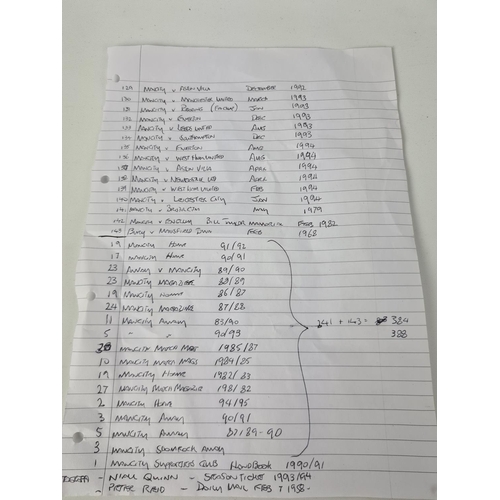 129 MANCITY v ASTON VILLA DECEMBER 1992
130 MANCITY v MANCHESTER UNITED MARCH 1993
131 MANCITY v READING (FACUP) JAN 1993
132 MANCITY v EVERTON DEC 1993
133 MANCITY v LEEDS UNITED AUG 1993
134 MANCITY v SOUTHAMPTON DEC 1993
135 MANCITY v EVERTON AUG 1994
136 MANCITY v WEST HAM UNITED AUG 1994
137 MANCITY v ASTON VILLA APRIL 1994
138 MANCITY v NEWCASTLE UTD APRIL 1994
139 MANCITY v WEST HAM UNITED FEB 1994
140 MANCITY v LEICESTER CITY JAN 1994
141 MANCITY v MAY 1979
142 MANCITY v ENGLAND BILL TAYLOR MEMORIAL FEB 1982
143 BURY v MANSFIELD TOWN FEB 1968
19 MANCITY HOME 91/92
17 MANCITY HOME 90/91
23 AWAY v MANCITY 89/90
23 MANCITY MAGAZINE 88/89
19 MANCITY HOME 86/87
24 MANCITY MAGAZINE 87/88
11 MANCITY AWAY 83/90 241 + 143 = 384
5 " " 90/93 388
20 MANCITY MATCH MAGS 1985/87
10 MANCITY MATCH MAGS 1984/85
19 MANCITY HOME 1982/83
27 MANCITY MATCH MAGAZINE 1981/82
2 MANCITY HOME 94/95
3 MANCITY AWAY 90/91
5 MANCITY AWAY 87/89-90
3 MANCITY SHAMROCK AWAY
1 MANCITY SUPPORTERS CLUB HANDBOOK 1990/91
- NIALL QUINN - SEASON TICKET 1993/94
- PETER REID - DAILY MAIL FEB 7 1958 -